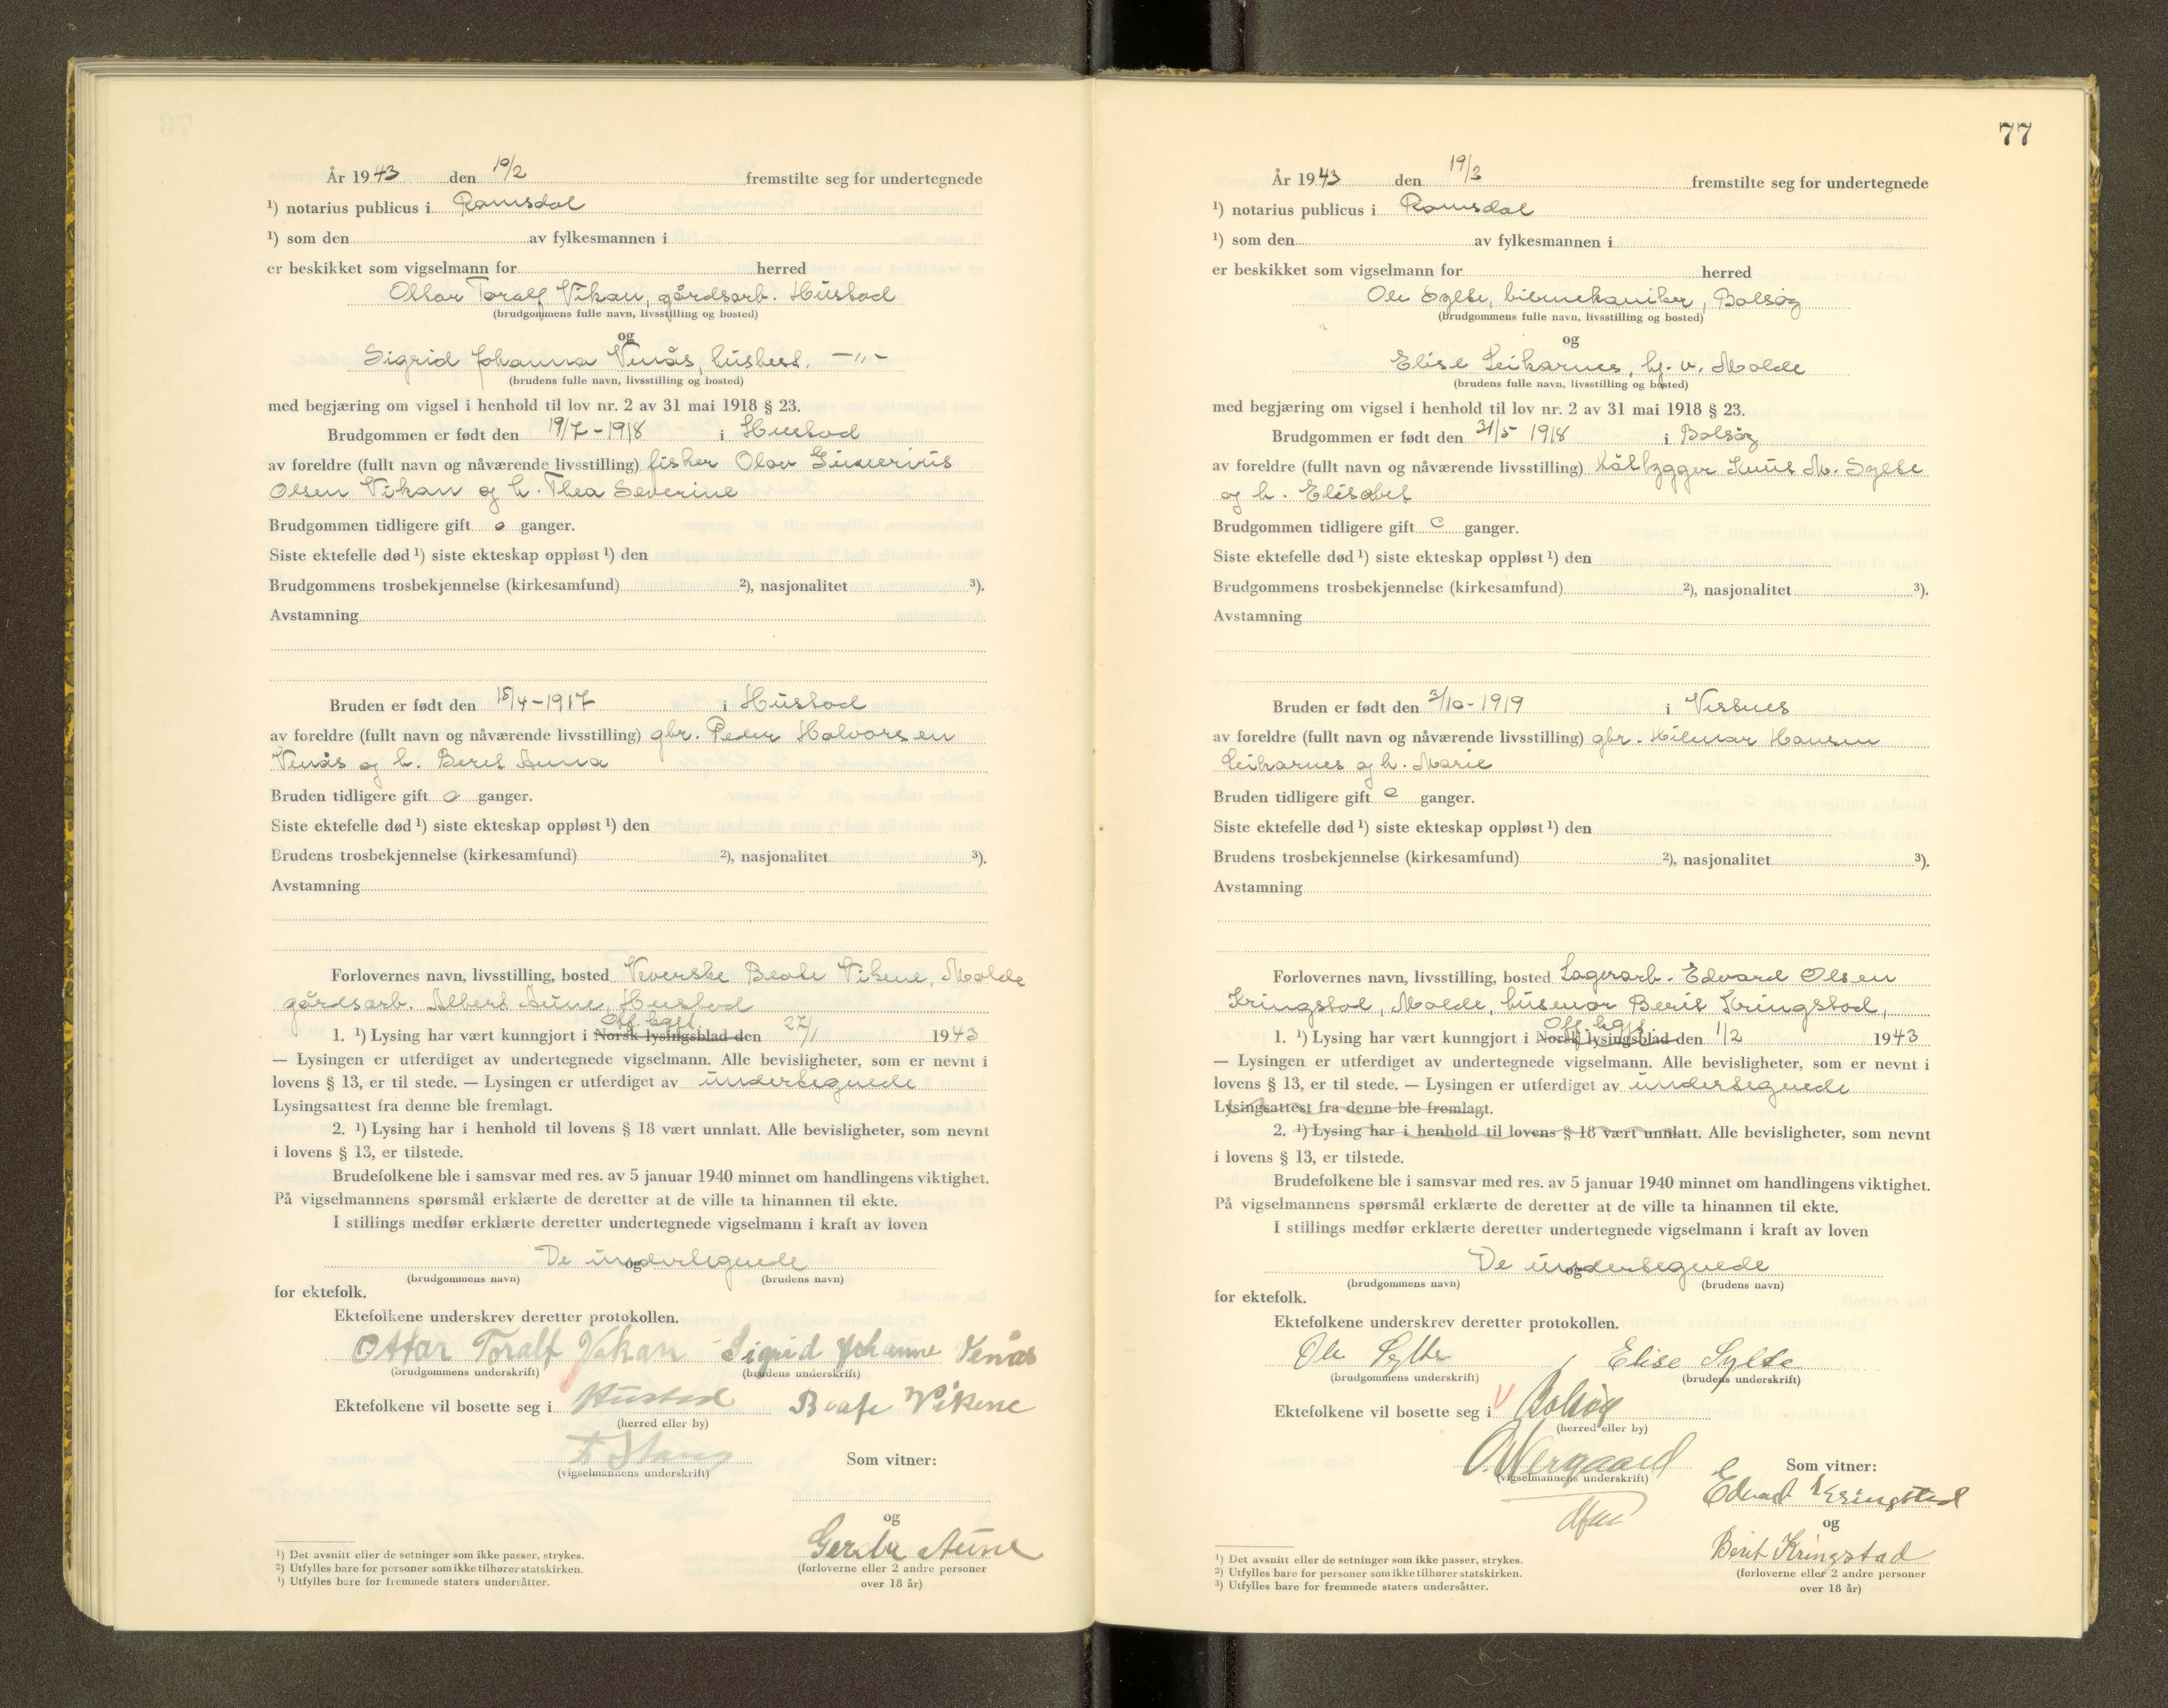 År 1943 den 19/2 fremstilte seg for undertegnede
¹) notarius publicus i Romsdal
¹) som den av fylkesmannen i
er beskikket som vigselmann for herred
Ottar Toralf Vikan, gårdsarb. Hustad
(brudgommens fulle navn, livsstilling og bosted)
og
Sigrid Johanna Venås, husbest. —〃—
(brudens fulle navn, livsstilling og bosted)
med begjæring om vigsel i henhold til lov nr. 2 av 31 mai 1918 § 23.
Brudgommen er født den 19/7-1918 i Hustad
av foreldre (fullt navn og nåværende livsstilling) fisker Olav
Olsen Vikan og h. Thea Severine
Brudgommen tidligere gift 0 ganger.
Siste ektefelle død ¹) siste ekteskap oppløst ¹) den
Brudgommens trosbekjennelse (kirkesamfund) ²), nasjonalitet ³).
Avstamning
Bruden er født den 15/4-1917 i Hustad
av foreldre (fullt navn og nåværende livsstilling) gbr. Peder Halvorsen
Venås og h. Beret Anna
Bruden tidligere gift 0 ganger.
Siste ektefelle død ¹) siste ekteskap oppløst ¹) den
Brudens trosbekjennelse (kirkesamfund) ²), nasjonalitet ³).
Avstamning
Forlovernes navn, livsstilling, bosted Veverske Beate Vikene, Molde
gårdsarb. Albert Aune, Hustad
Off. kgjt.
1. ¹) Lysing har vært kunngjort i Norsk lysingsblad den 27/1 1943
— Lysingen er utferdiget av undertegnede vigselmann. Alle bevisligheter, som er nevnt i
lovens § 13, er til stede. — Lysingen er utferdiget av undertegnede
Lysingsattest fra denne ble fremlagt.
2. ¹) Lysing har i henhold til lovens § 18 vært unnlatt. Alle bevisligheter, som nevnt
i lovens § 13, er tilstede.
Brudefolkene ble i samsvar med res. av 5 januar 1940 minnet om handlingens viktighet.
På vigselmannens spørsmål erklærte de deretter at de ville ta hinannen til ekte.
I stillings medfør erklærte deretter undertegnede vigselmann i kraft av loven
De undertegnede
og
(brudgommens navn) (brudens navn)
for ektefolk.
Ektefolkene underskrev deretter protokollen.
Ottar Toralf Vikan Sigrid Johanne Venås
(brudgommens underskrift) (brudens underskrift)
Ektefolkene vil bosette seg i Hustad Beate Vikene
(herred eller by)
F Stang
(vigselmannens underskrift) Som vitner:
og
Gerda Aune
(forloverne eller 2 andre personer
over 18 år)
¹) Det avsnitt eller de setninger som ikke passer, strykes.
²) Utfylles bare for personer som ikke tilhører statskirken.
³) Utfylles bare for fremmede staters undersåtter.
77
År 1943 den 19/2 fremstilte seg for undertegnede
¹) notarius publicus i Romsdal
¹) som den av fylkesmannen i
er beskikket som vigselmann for herred
Ole Sylte, bilmekaniker, Bolsøy
(brudgommens fulle navn, livsstilling og bosted)
og
Elise Leikarnes, hj. v. Molde
(brudens fulle navn, livsstilling og bosted)
med begjæring om vigsel i henhold til lov nr. 2 av 31 mai 1918 § 23.
Brudgommen er født den 31/5 1918 i Bolsøy
av foreldre (fullt navn og nåværende livsstilling) båtbygger Knut M. Sylte
og h. Elisabet
Brudgommen tidligere gift 0 ganger.
Siste ektefelle død ¹) siste ekteskap oppløst ¹) den
Brudgommens trosbekjennelse (kirkesamfund) ²), nasjonalitet ³).
Avstamning
Bruden er født den 3/10-1919 i Vestnes
av foreldre (fullt navn og nåværende livsstilling) gbr. Hilmar Hansen
Leikarnes og h. Marie
Bruden tidligere gift 0 ganger.
Siste ektefelle død ¹) siste ekteskap oppløst ¹) den
Brudens trosbekjennelse (kirkesamfund) ²), nasjonalitet ³).
Avstamning
Forlovernes navn, livsstilling, bosted Lagerarb. Edvard Olsen
Kringstad, Molde, husmor Berit Kringstad,
Off. kgjt.
1. ¹) Lysing har vært kunngjort i Norsk lysingsblad den 1/2 1943
— Lysingen er utferdiget av undertegnede vigselmann. Alle bevisligheter, som er nevnt i
lovens § 13, er til stede. — Lysingen er utferdiget av undertegnede
Lysingsattest fra denne ble fremlagt.
2. ¹) Lysing har i henhold til lovens § 18 vært unnlatt. Alle bevisligheter, som nevnt
i lovens § 13, er tilstede.
Brudefolkene ble i samsvar med res. av 5 januar 1940 minnet om handlingens viktighet.
På vigselmannens spørsmål erklærte de deretter at de ville ta hinannen til ekte.
I stillings medfør erklærte deretter undertegnede vigselmann i kraft av loven
De undertegnede
og
(brudgommens navn) (brudens navn)
for ektefolk.
Ektefolkene underskrev deretter protokollen.
Ole Sylte Elise Sylte
(brudgommens underskrift) (brudens underskrift)
Ektefolkene vil bosette seg i Bolsøy
(herred eller by)
O. Vergaard
(vigselmannens underskrift) Som vitner:
Edvard Kringstad
og
Berit Kringstad
(forloverne eller 2 andre personer
over 18 år)
¹) Det avsnitt eller de setninger som ikke passer, strykes.
²) Utfylles bare for personer som ikke tilhører statskirken.
³) Utfylles bare for fremmede staters undersåtter.